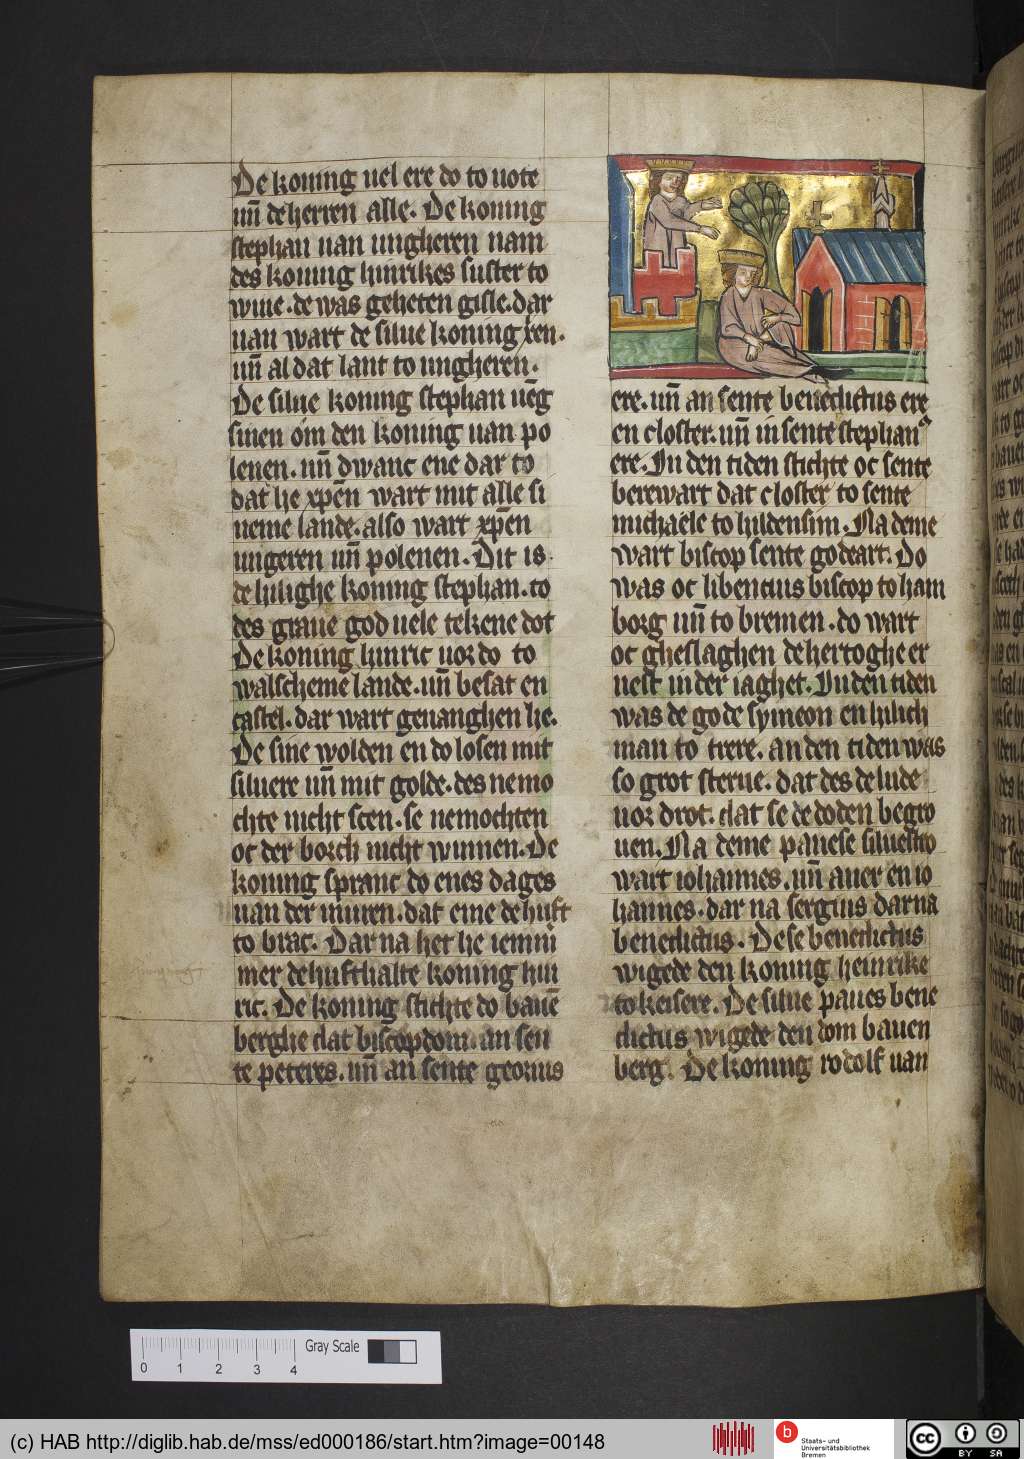 De koning uel ere do to uote
uñ de herren alle. De koning
stephan uan ungheren nam
des koning hinrikes suster to
wiue. de was geheten gisle. dar
uan wart de silue koning xen.
uñ al dat lant to ungheren.
De silue koning stephan ueg
sinen om den koning uan po
lenen. uñ dwanc ene dar to
dat he xpen wart mit alle si
neme lande. also wart xpen
ungeren uñ polenen. Dit is
de hilighe koning stephan. to
des graue god uele tekene dot
De koning hinric uor do to
walscheme lande. uñ besat en
castel. dar wart geuanghen he.
De sine wolden en do losen mit
siluere uñ mit golde. des ne mo
chte nicht scen. se nemochten
oc der borch nicht winnen. De
koning spranc do enes dages
uan der muren. dat eme de huft
to brac. Dar na het he iemm
mer de hufthalte koning hin
ric. De koning stichte do bauē
berghe dat biscopdom. an sen
te peteres. uñ an sente georius
ere. uñ an sente benedictus ere
en closter. uñ in sente stephan⁹
ere. In den tiden stichte oc sente
berewart dat closter to sente
michaele to hildensim. Na deme
wart biscop sente godeart. Do
was oc libencius biscop to ham
borg uñ to bremen. do wart
oc gheslaghen de hertoghe er
nest in der iaghet. In den tiden
was de gode symeon en hilich
man to trere. an den tiden was
so grot sterue. dat des de lude
uor drot. dat se de doden begro
uen. Na deme panese siluestro
wart iohannes. uñ auer en io
hannes. dar na sergius dar na
benedictus. Dese benedictus
wigede den koning heinrike
to keisere. De silue paues bene
dictus wigede den dom bauen
berg. De koning rodolf uan
0 1 2 3 4
Gray Scale
(c) HAB http://diglib.hab.de/mss/ed000186/start.htm?image=00148
b
Staats- und
Universitätsbibliothek
Bremen
cc
BY SA